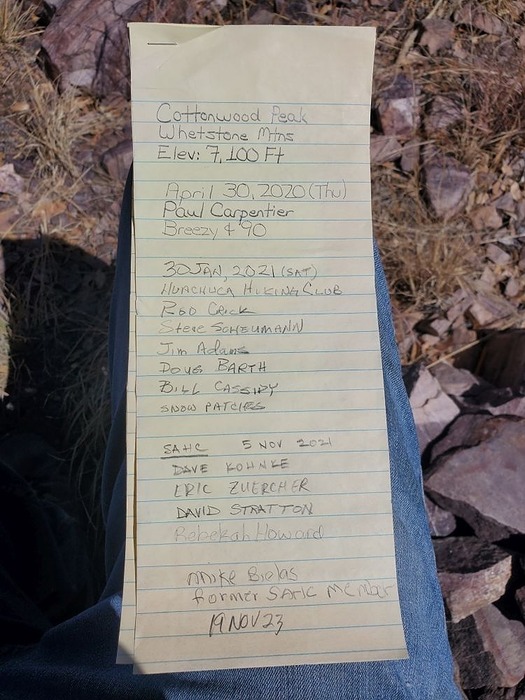 Cottonwood Peak
Whetstone Mtns
Elev: 7,100 Ft
April 30, 2020 (Thu)
Paul Carpentier
Breezy & 90
30 JAN, 2021 (SAT)
HUACHUCA HIKING CLUB
ROD CRICK
Steve SCHEUMANN
Jim Adams
DOUG BARTH
BILL CASSIDY
SNOW PATCHES
SAHC 5 NOV 2021
DAVE KOHNKE
ERIC ZUERCHER
DAVID STRATTON
Rebekah Howard
Mike Bielas
former SAHC Member
19 NOV 23